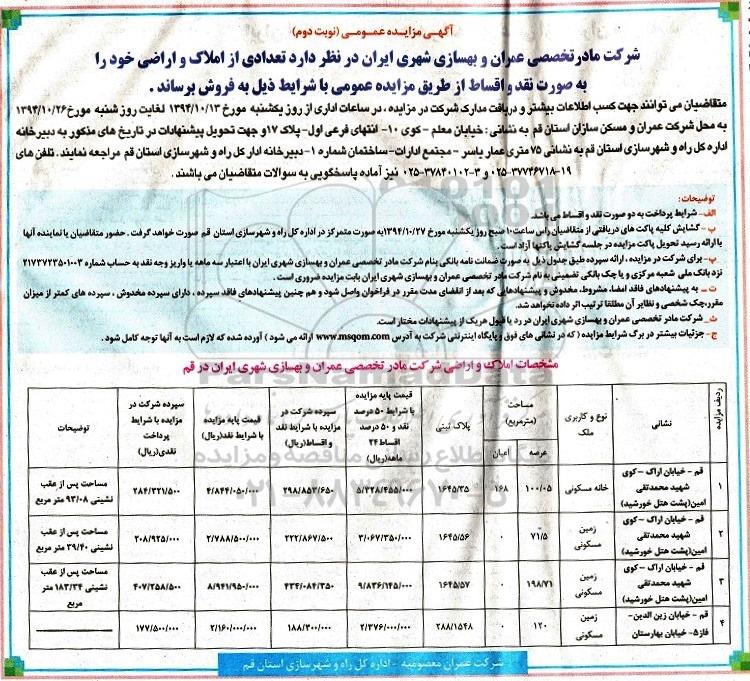 آگهی مزایده عمومی (نوبت دوم)
شرکت مادرتخصصی عمران و بهسازی شهری ایران در نظر دارد تعدادی از املاک و اراضی خود را
به صورت نقد و اقساط از طریق مزایده عمومی با شرایط ذیل به فروش برساند .
متقاضیان می توانند جهت کسب اطلاعات بیشتر و دریافت مدارک شرکت در مزایده ، در ساعات اداری از روز یکشنبه مورخ ۱۳۹۴/۱۰/۱۳ لغایت روز شنبه مورخ ۱۳۹۴/۱۰/۲۶
به محل شرکت عمران و مسکن سازان استان قم به نشانی : خیابان معلم - کوی ۱۰- انتهای فرعی اول- پلاک ۱۷ و جهت تحویل پیشنهادات در تاریخ های مذکور به دبیرخانه
اداره کل راه و شهرسازی استان قم به نشانی ۷۵ متری عمار یاسر - مجتمع ادارات- ساختمان شماره ۱- دبیرخانه اداره کل راه و شهرسازی استان قم مراجعه نمایند . تلفن های
۱۹-۰۲۵-۳۷۷۴۶۷۱۸ و ۳-۰۲۵-۳۷۸۴۰۱۰۲ نیز آماده پاسخگویی به سوالات متقاضیان می باشند .
توضیحات:
الف- شرایط پرداخت به دو صورت نقد و اقساط می باشد.
ب- گشایش کلیه پاکت های دریافتی از متقاضیان راس ساعت ۱۰ صبح روز یکشنبه مورخ ۱۳۹۴/۱۰/۲۷ به صورت متمرکز در اداره کل راه و شهرسازی استان قم صورت خواهد گرفت . حضور متقاضیان یا نماینده آنها
با ارائه رسید تحویل پاکت مزایده در جلسه گشایش پاکتها آزاد است .
پ- برای شرکت در مزایده ، ارائه سپرده طبق جدول ذیل به صورت ضمانت نامه بانکی بنام شرکت مادر تخصصی عمران و بهسازی شهری ایران با اعتبار سه ماهه یا واریز وجه نقد به حساب شماره ۲۱۷۳۷۲۳۵۰۱۰۰۳
نزد بانک ملی شعبه مرکزی و یا چک بانکی تضمینی به نام شرکت مادر تخصصی عمران و بهسازی شهری ایران بابت مزایده ضروری است .
ت- به پیشنهادهای فاقد امضا، مشروط، مخدوش و پیشنهادهایی که بعد از انقضای مدت مقرر در فراخوان واصل شود و هم چنین پیشنهادهای فاقد سپرده ، دارای سپرده مخدوش ، سپرده های کمتر از میزان
مقرر،چک شخصی و نظایر آن مطلقا ترتیب اثر داده نخواهد شد.
ث- شرکت مادر تخصصی عمران و بهسازی شهری ایران در رد یا قبول هریک از پیشنهادات مختار است.
ج- جزئیات بیشتر در برگ شرایط مزایده ( که در نشانی های فوق و پایگاه اینترنتی شرکت به آدرس www.msqom.com ارائه می شود ) آورده شده که لازم است به آنها توجه کامل شود .
مشخصات املاک و اراضی شرکت مادر تخصصی عمران و بهسازی شهری ایران در قم
ردیف مزایده | نشانی | نوع و کاربری ملک | مساحت (مترمربع) عرصه | اعیان | پلاک ثبتی | قیمت پایه مزایده با شرایط ۵۰ درصد نقد و ۵۰ درصد اقساط ۲۴ ماهه(ریال) | سپرده شرکت در مزایده با شرایط نقد و اقساط(ریال) | قیمت پایه مزایده با شرایط نقد(ریال) | سپرده شرکت در مزایده با شرایط پرداخت نقدی(ریال) | توضیحات
۱ | قم - خیابان اراک -کوی شهید محمدتقی امین(پشت هتل خورشید) | خانه مسکونی | ۱۰۰/۰۵ | ۱۶۸ | ۱۶۴۵/۳۵ | ۵/۳۲۸/۴۵۵/۰۰۰ | ۲۹۸/۸۵۳/۶۵۰ | ۴/۸۴۴/۰۵۰/۰۰۰ | ۲۸۴/۳۲۱/۵۰۰ | مساحت پس از عقب نشینی ۹۳/۰۸ متر مربع
۲ | قم - خیابان اراک -کوی شهید محمدتقی امین(پشت هتل خورشید) | زمین مسکونی | ۷۱/۵ | ۰ | ۱۶۴۵/۵۶ | ۳/۰۶۷/۳۵۰/۰۰۰ | ۲۲۲/۸۶۷/۵۰۰ | ۲/۷۸۸/۵۰۰/۰۰۰ | ۲۰۸/۹۲۵/۰۰۰ | مساحت پس از عقب نشینی ۳۹/۴۰ متر مربع
۳ | قم - خیابان اراک -کوی شهید محمدتقی امین(پشت هتل خورشید) | زمین مسکونی | ۱۹۸/۷۱ | ۰ | ۱۶۴۵/۵۷ | ۹/۸۳۶/۱۴۵/۰۰۰ | ۴۳۴/۰۸۴/۳۵۰ | ۸/۹۴۱/۹۵۰/۰۰۰ | ۴۰۷/۲۵۸/۵۰۰ | مساحت پس از عقب نشینی ۱۸۳/۳۴ متر مربع
۴ | قم - خیابان زین الدین- فاز۵- خیابان بهارستان | زمین مسکونی | ۱۲۰ | ۰ | ۲۸۸/۱۵۴۸ | ۲/۳۷۶/۰۰۰/۰۰۰ | ۱۸۸/۳۰۰/۰۰۰ | ۲/۱۶۰/۰۰۰/۰۰۰ | ۱۷۷/۵۰۰/۰۰۰
شرکت عمران معصومیه - اداره کل راه و شهرسازی استان قم